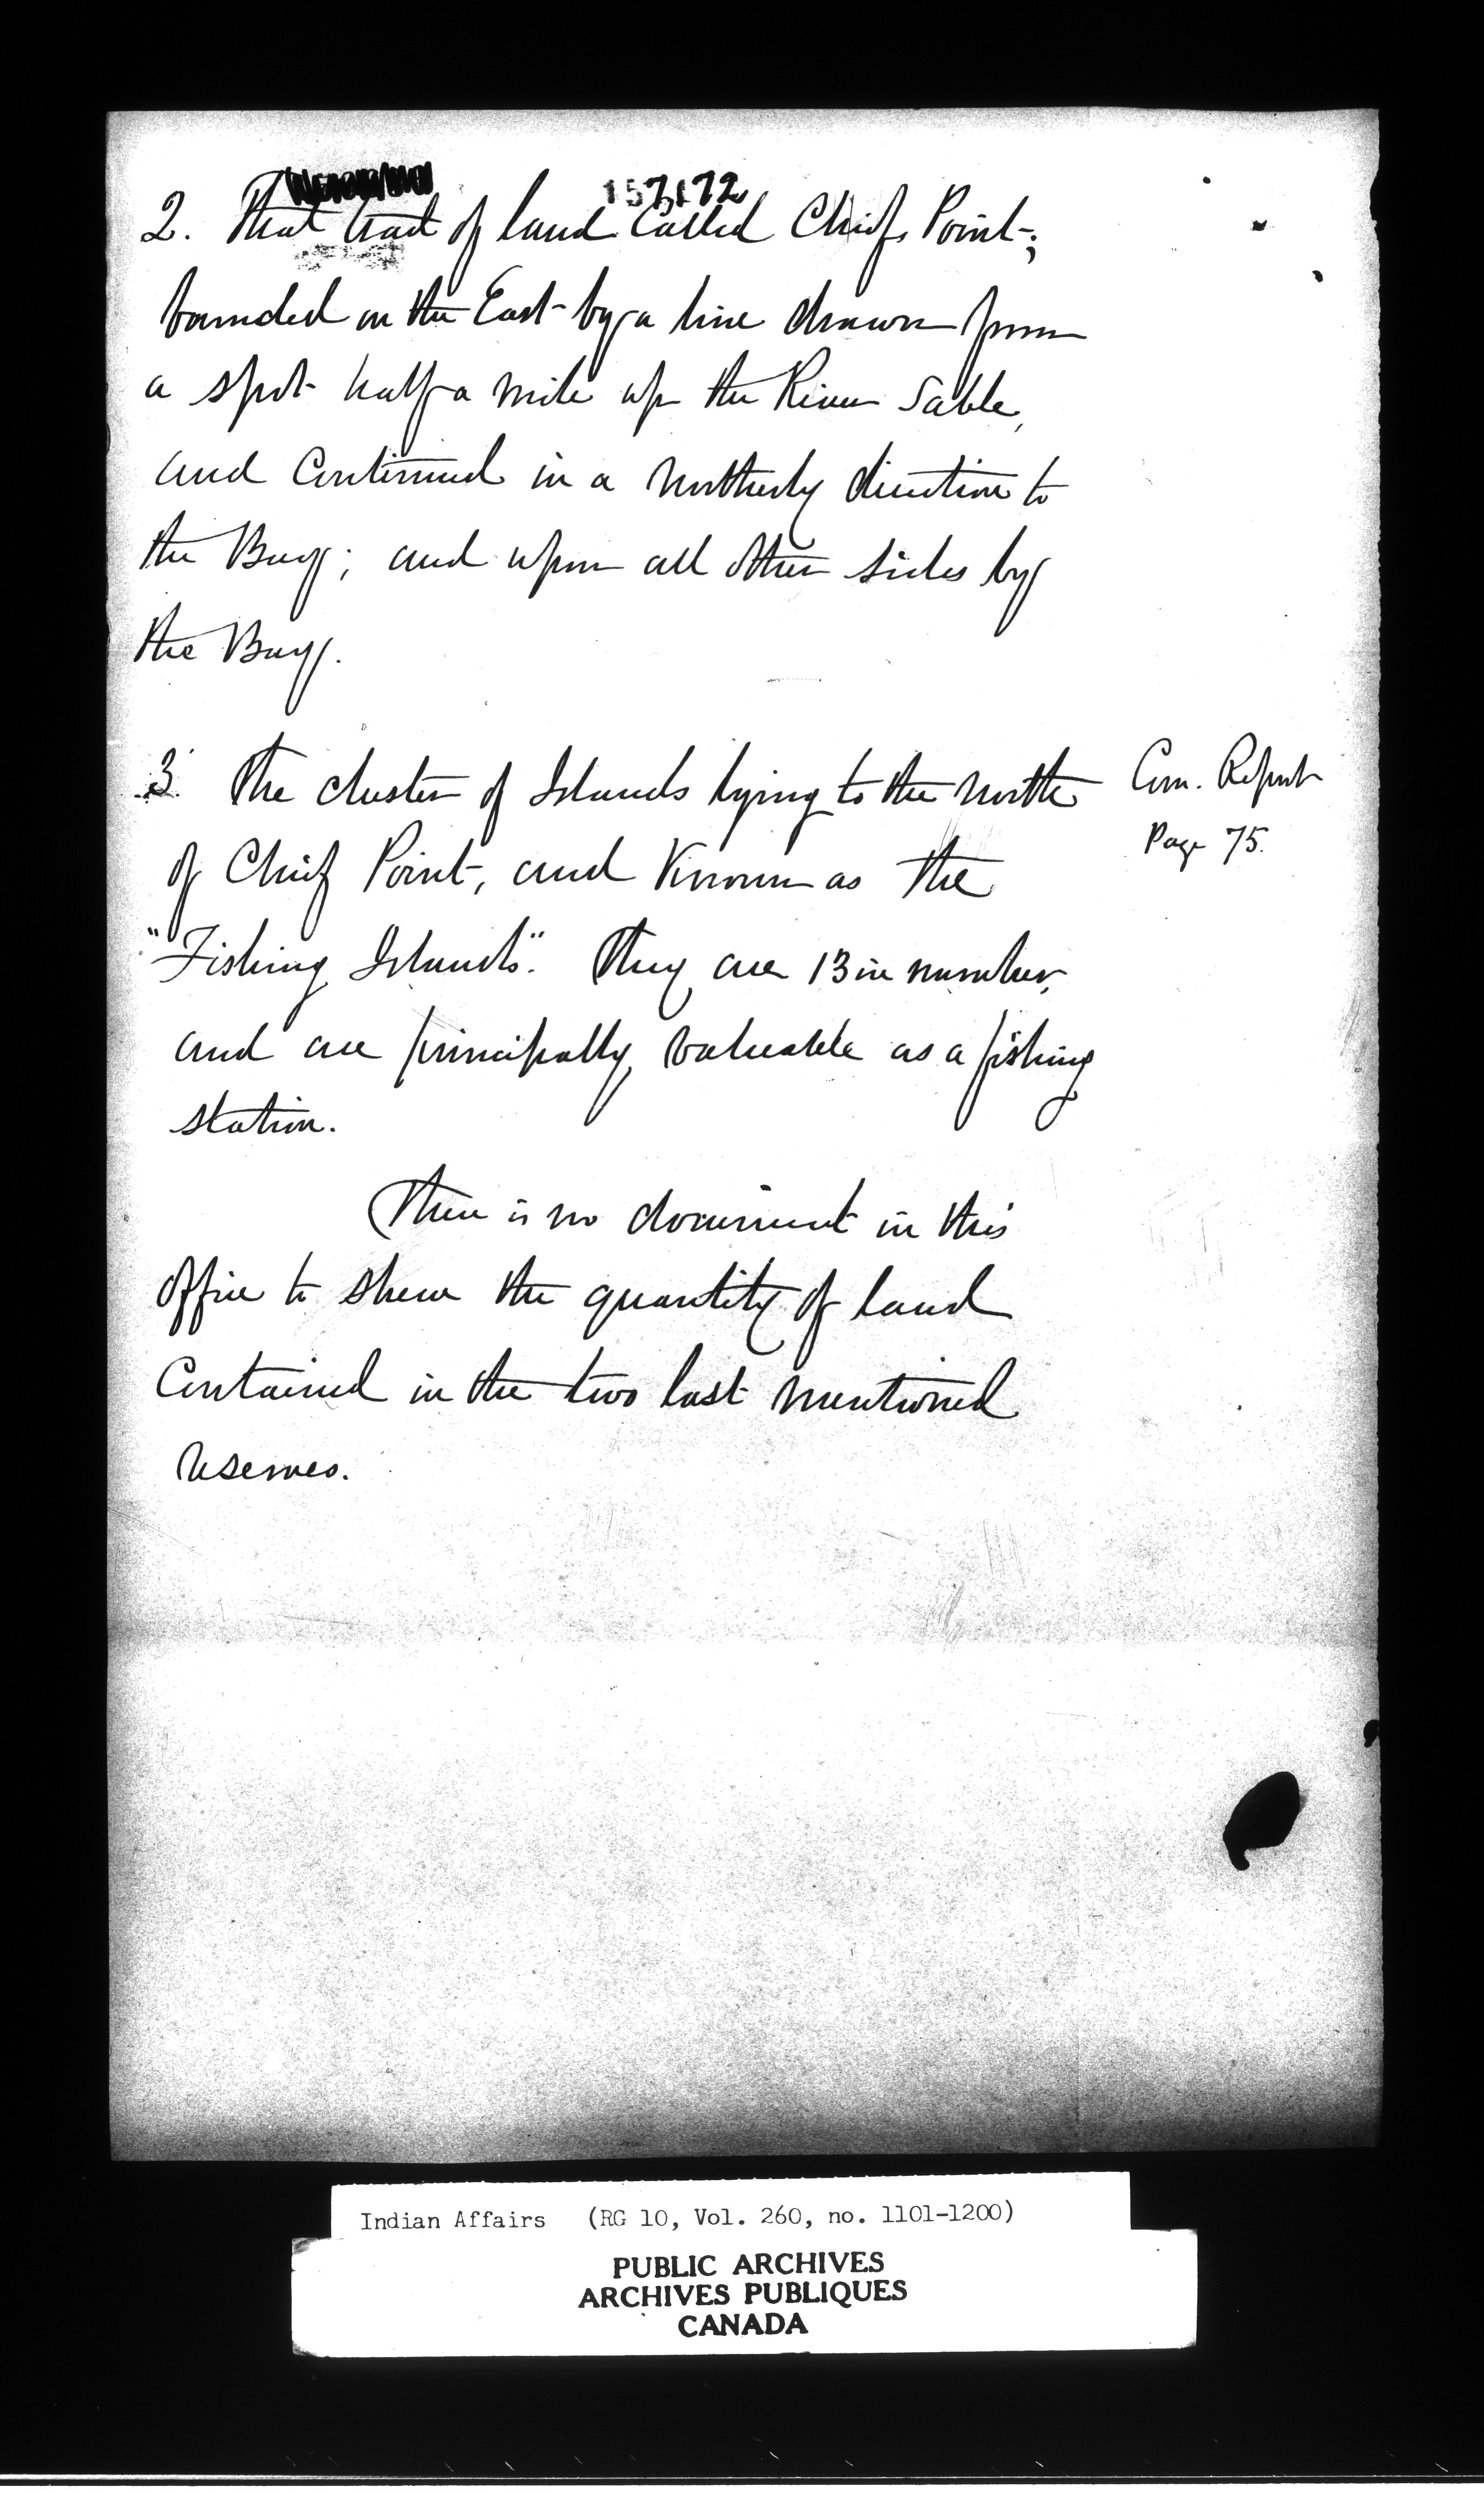 157172
2. That tract of land called Chiefs Point;
bounded on the East by a line drawn from
a spot half a mile up the River Sable,
and continued in a northerly direction to
the Bay; and upon all other sides by
the Bay.
3. The cluster of Islands lying to the north
Com. Report
Page 75.
of Chief Point, and Known as the
"Fishing Islands". They are 13 in number,
and are principally valuable as a fishing
station.
There is no document in this
office to shew the quantity of land
contained in the two last mentioned
reserves.
Indian Affairs (RG 10, Vol. 260, no. 1101-1200)
PUBLIC ARCHIVES
ARCHIVES PUBLIQUES
CANADA